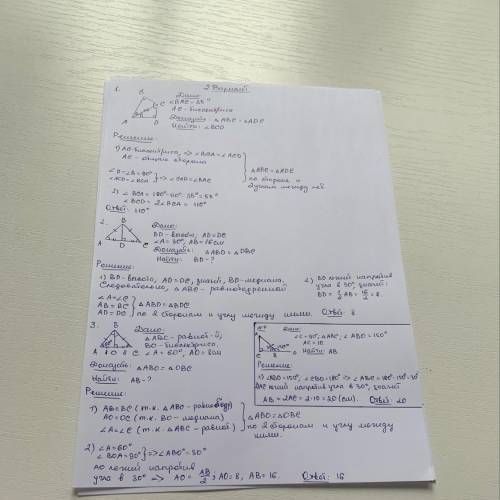 2 Вариант
1.
Дано:
∠BAC = 35°
AC - биссектриса
Доказать: △ABC = △ADC
Найти: ∠BCD
B
C
A
D
Решение:
1) AC - биссектриса, =>
AC - общая сторона
△ABC = △ADC
по стороне и
2 углам между ней
2) ∠BCA = 180° - 90° - 35° = 55°
∠BCD = 2∠BCA = 110°
Ответ: 110°
2.
Дано:
BD - высота, AD = DC
∠A = 30°, AB = 16 см
Доказать: △ABD = △DBC
Найти: BD - ?
B
A
D
C
Решение:
1) BD - высота, AD = DC, значит, BD - медиана.
Следовательно, △ABC - равнобедренный
∠A = ∠C
AB = BC
AD = DC
△ABD = △BDC
по 2 сторонам и углу между ними.
2) BD лежит напротив
угла в 30°, значит
BD = 1/2 AB = 16/2 = 8.
Ответ: 8
3.
Дано:
△ABC - равноб-й;
BO - биссектриса,
∠A = 60°, AO = 8 см
Доказать: △ABO = △OBC
Найти: AB - ?
Решение:
1) AB = BC (т.к. △ABC - равнобедр)
AO = OC (т.к. BO - медиана)
∠A = ∠C (т.к. △ABC - равноб)
△ABO = △OBC
по 2 сторонам и углу между
ними.
2) ∠A = 60°
∠BOA = 90°
=> ∠ABO = 30°
AO лежит напротив
угла в 30° => AO = AB/2; AO = 8, AB = 16.
Ответ: 16
N4
Дано:
∠C = 90°, △ABC, ∠ABD = 150°
AC = 10
Найти: AB
Решение:
2) AC лежит напротив угла в 30°, значит
AB = 2AC = 2·10 = 20 (см). Ответ: 20